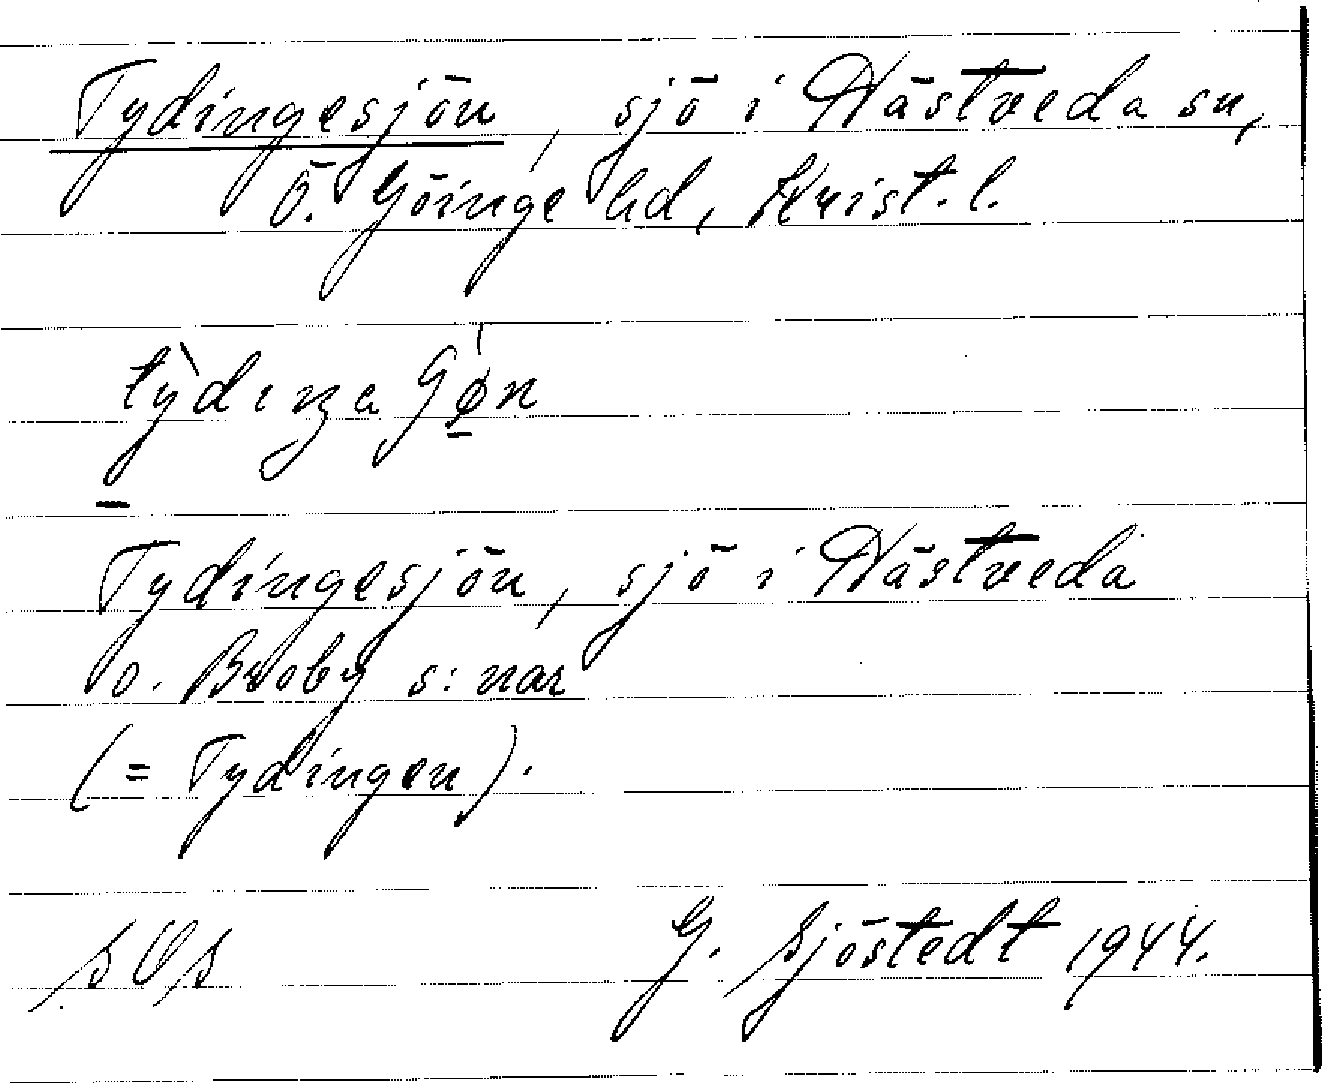 Tydingesjön, sjö i Hästveda sn,
Ö. Göinge hd, Krist. l.
Tydingesjön, sjö i Hästveda
o. Broby s:nar
(= Tydingen).
G. Sjöstedt 1944.